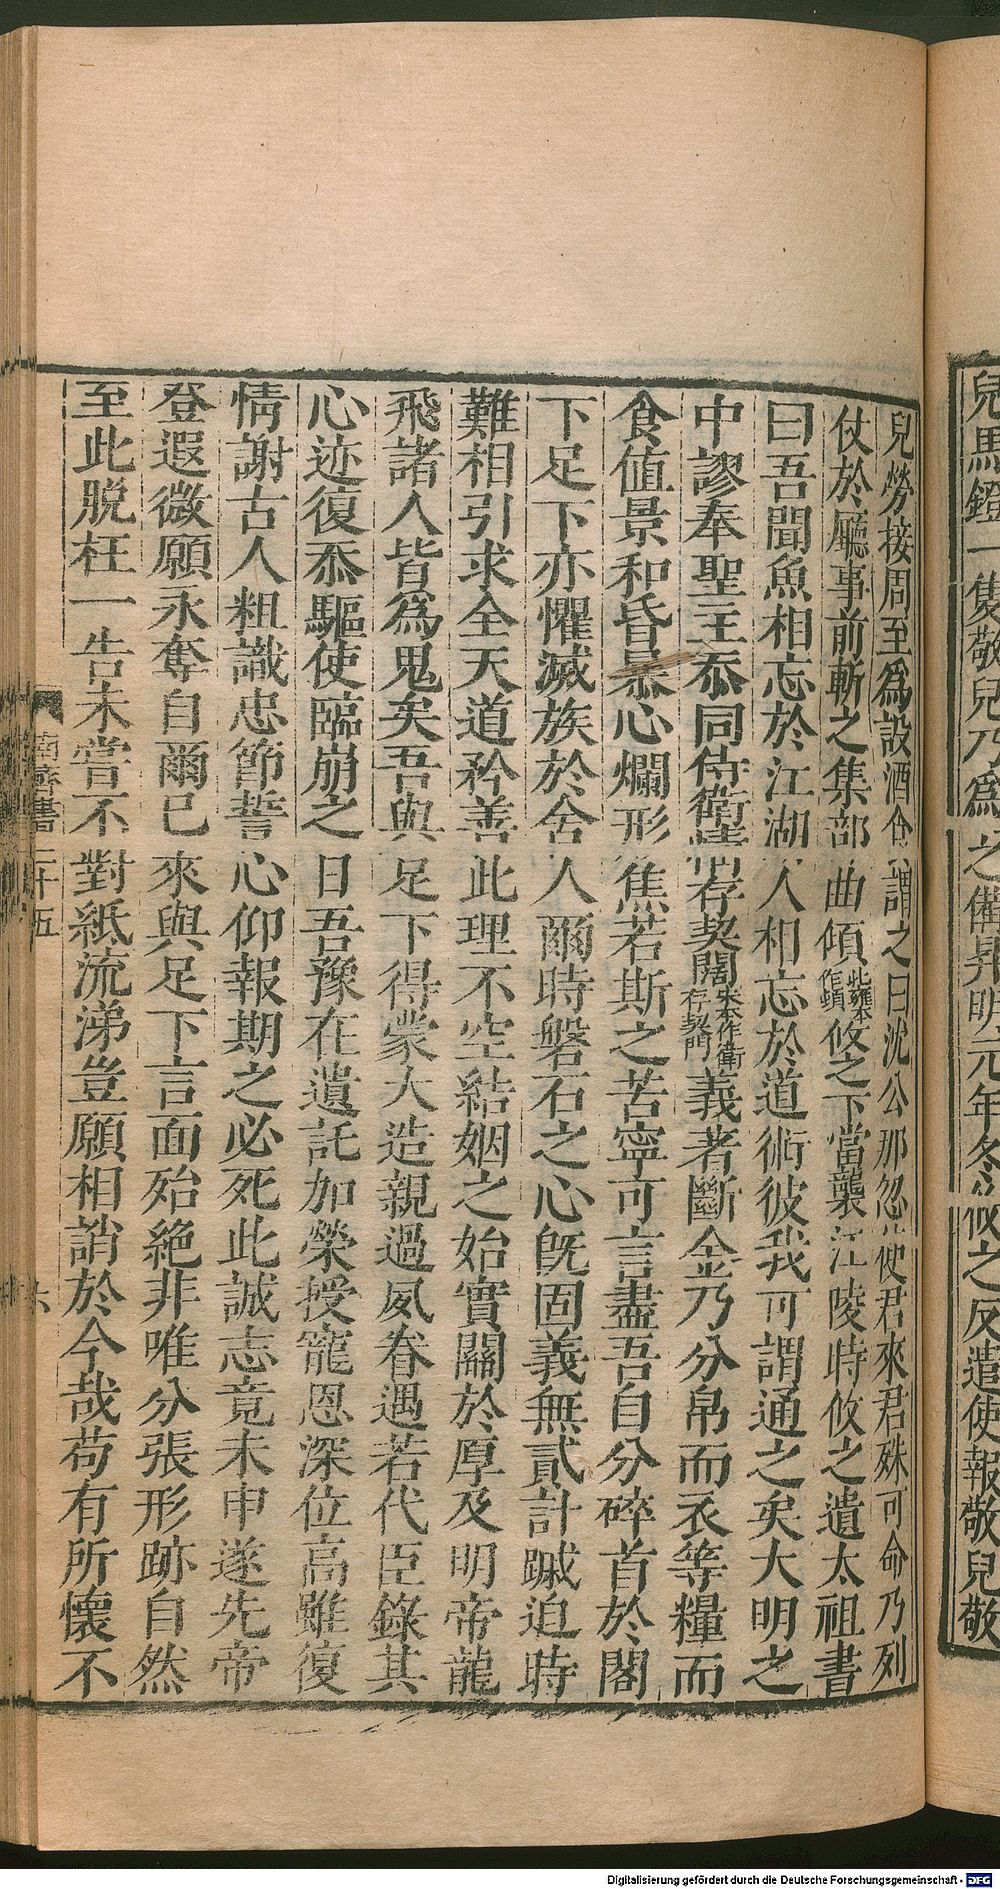 兒馬鐙一隻敬兒乃爲之備昇明元年冬攸之反遣使報敬兒敬
兒勞接周至爲設酒食謂之曰沈公那忽使君來君殊可命乃列
仗於廳事前斬之集部曲傾此雍本作頓攸之下當襲江陵時攸之遺太祖書
曰吾聞魚相忘於江湖人相忘於道術彼我可謂通之矣大明之
中謬奉聖主忝同侍衛情存契闊宋本作衛存契門義著斷金乃分帛而衣等糧而
食值景和昏暴心爛形焦若斯之苦寧可言盡吾自分碎首於閤
下足下亦懼滅族於舍人爾時磐石之心旣固義無貳計䠞迫時
難相引求全天道矜善此理不空結姻之始實關於厚及明帝龍
飛諸人皆爲鬼矣吾與足下得蒙大造親過夙眷遇若代臣錄其
心迹復忝驅使臨崩之日吾豫在遺託加榮授寵恩深位高雖復
情謝古人粗識忠節誓心仰報期之必死此誠志竟未申遂先帝
登遐微願永奪自爾已來與足下言面殆絕非唯分張形跡自然
至此脱枉一告未嘗不對紙流涕豈願相誚於今哉苟有所懷不
南齊書二十五
六
Digitalisierung gefördert durch die Deutsche Forschungsgemeinschaft - DFG